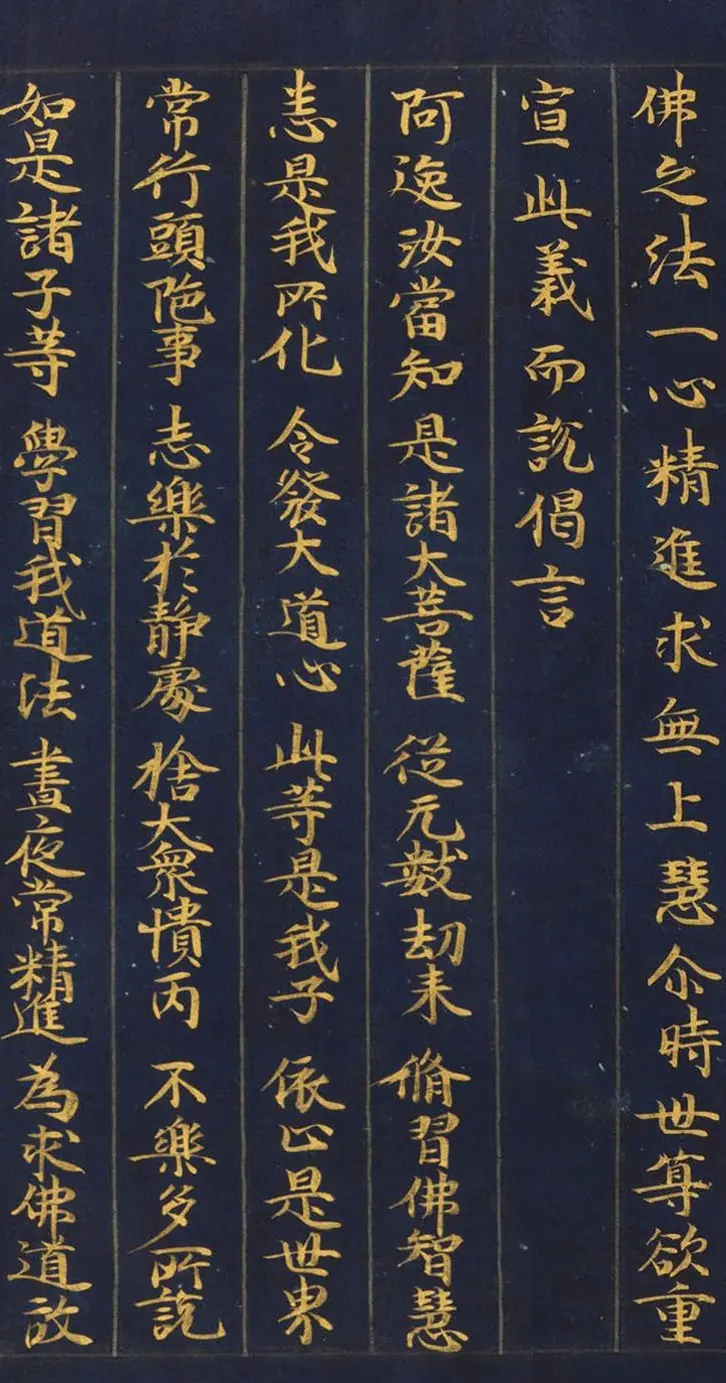 佛之法一心精進求無上慧尒時世尊欲重
宣此義而說偈言
阿逸汝當知 是諸大菩薩 從无數劫来 脩習佛智慧
悉是我所化 令發大道心 此等是我子 依止是世界
常行頭陁事 志樂於静處 捨大衆憒丙 不樂多所說
如是諸子等 學習我道法 晝夜常精進 為求佛道故